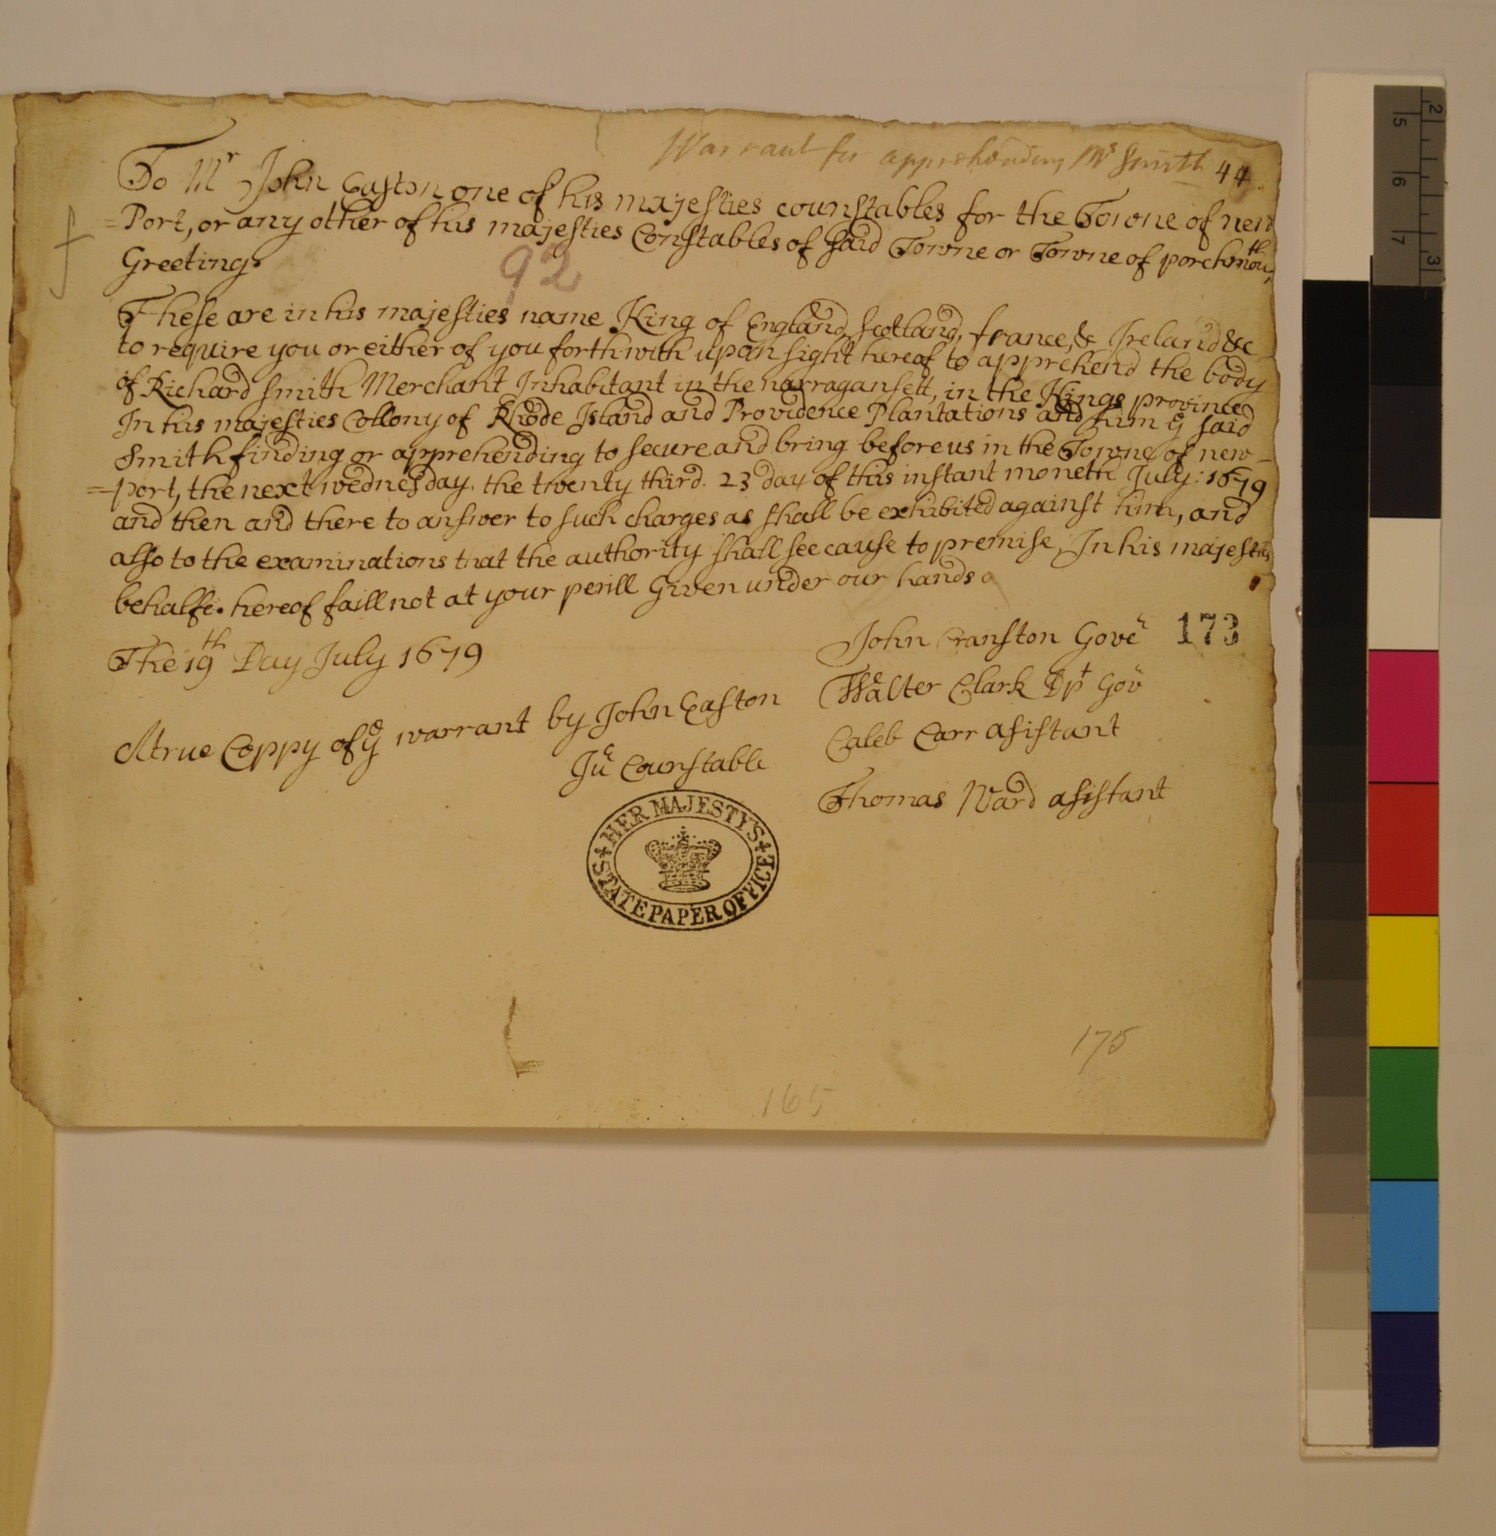 Warrant for apprehending Mr Smith 44
To Mr John Easton one of his majesties counstables for the Towne of new
=Port, or any other of his majesties Constables of said Towne or Towne of portchmouth,
Greeting.
92
These are in his majesties name King of England, Scotland, france, & Ireland &c
to require you or either of you forthwith upon sight hereof to apprehend the body
of Richard Smith Merchant Inhabitant in the narragansett, in the Kings province
In his majesties Collony of Rhode Island and Providence Plantations and him ye said
Smith finding or apprehending to secure and bring before us in the Towne of new=
=port, the next wednesday. the twenty third. 23 day of this instant moneth July: 1679
and then and there to answer to such charges as shall be exhibited against him, and
also to the examinations that the authority shall see cause to premise, In his majesties
behalfe. hereof faill not at your perill Given under our hands
The 19th Day July 1679
John Cranston Gover
173
Walter Clark Dpt Gov
A true Coppy of ye warrant by John Easton
Caleb Carr asistant
Ju Counstable
Thomas Ward asistant
HER MAJESTY'S STATE PAPER OFFICE
175
165
5 6 7
2 3